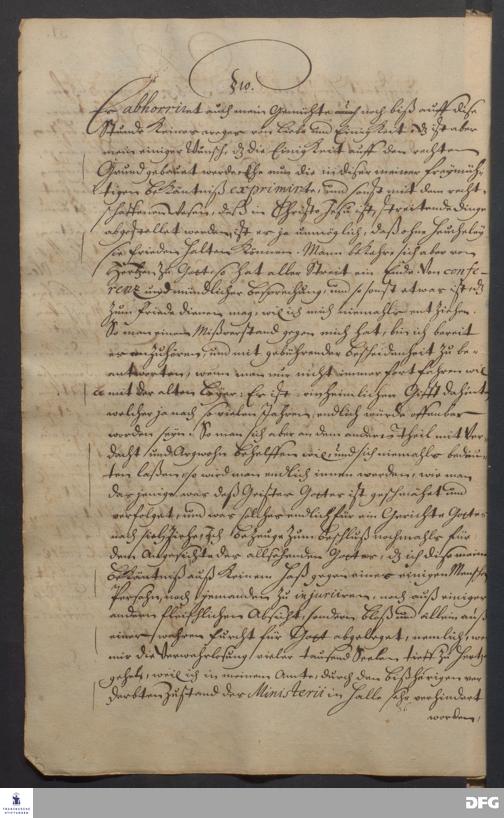 §10.
Es abhorriret auch mein Gemühte noch biß auff diese
Stunde keines weges von Liebe und Einigkeit, Es ist aber
mein einiger Wunsch, dz die Einigkeit auff den rechten
Grund gebauet werde. Ehe nun die in dieser meiner freymüh-
tigen Bekäntniß exprimirte, und sonst mit dem recht-
schaffenen Wesen, daß in Christo Jesu ist, streitende dinge
abgestellet worden, ist es ja unmöglich, daß ohne Heucheley
sie Frieden halten können. Mann bekehre sich aber von
Hertzen zu Gott, so hat aller Streit ein Ende. Von confe-
renz und mündlicher besprechung, und so sonst etwas ist, dz
zum Friede dienen mag, wil ich mich niemahls entziehen.
So man einen Mißverstand gegen mich hat, bin ich bereit
es anzuhören, und mit gebührender bescheidenheit zu be-
antworten, wenn man nur nicht immer fort fahren wil
mit der alten Es ist ein heimlicher Gifft dahinter
welcher ja nach so vielen Jahren, endlich würde offenbar
worden seyn. So man sich aber an dem andern Theil mit Ver-
dacht und Argwohn behelffen wil, und sich niemahls bedeu-
ten laßen, so wird man endlich innen werden, wie man
dasjenige, was deß Geistes Gottes ist geschmähet und
verfolget, und was solches endlich für ein Gerichte Gottes
nach sich ziehe, Ich bezeuge zum beschluß nochmahls für
dem Angesichte des allsehenden Gottes, dz ich diese meine
Bekäntniß auß keinem Haß gegen eines einigen Menschen
Persohn, noch jemanden zu injuriiren, noch auß einiger
andern fleischlichen Absicht, sondern bloß und allein auß
einer wahren Furcht für Gott abgeleget, nemlich, weil
mir die Verwahrlosung vieler tausend Seelen tieff zu Hertzen
gehet, weil ich in meinem Amte, durch den bißhärigen ver-
derbten Zustand des Ministerii in Halle sehr verhindert
worden,
FRANCKESCHE
STIFTUNGEN
DFG